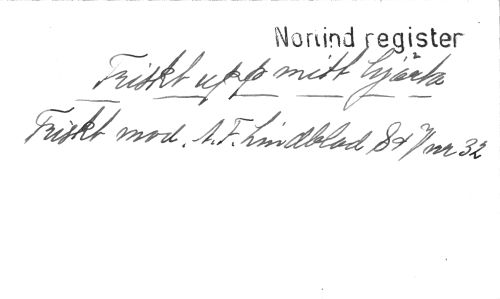 Norlind register
Friskt upp mitt hjärta
Friskt mod. A. F. Lindblad nr 32